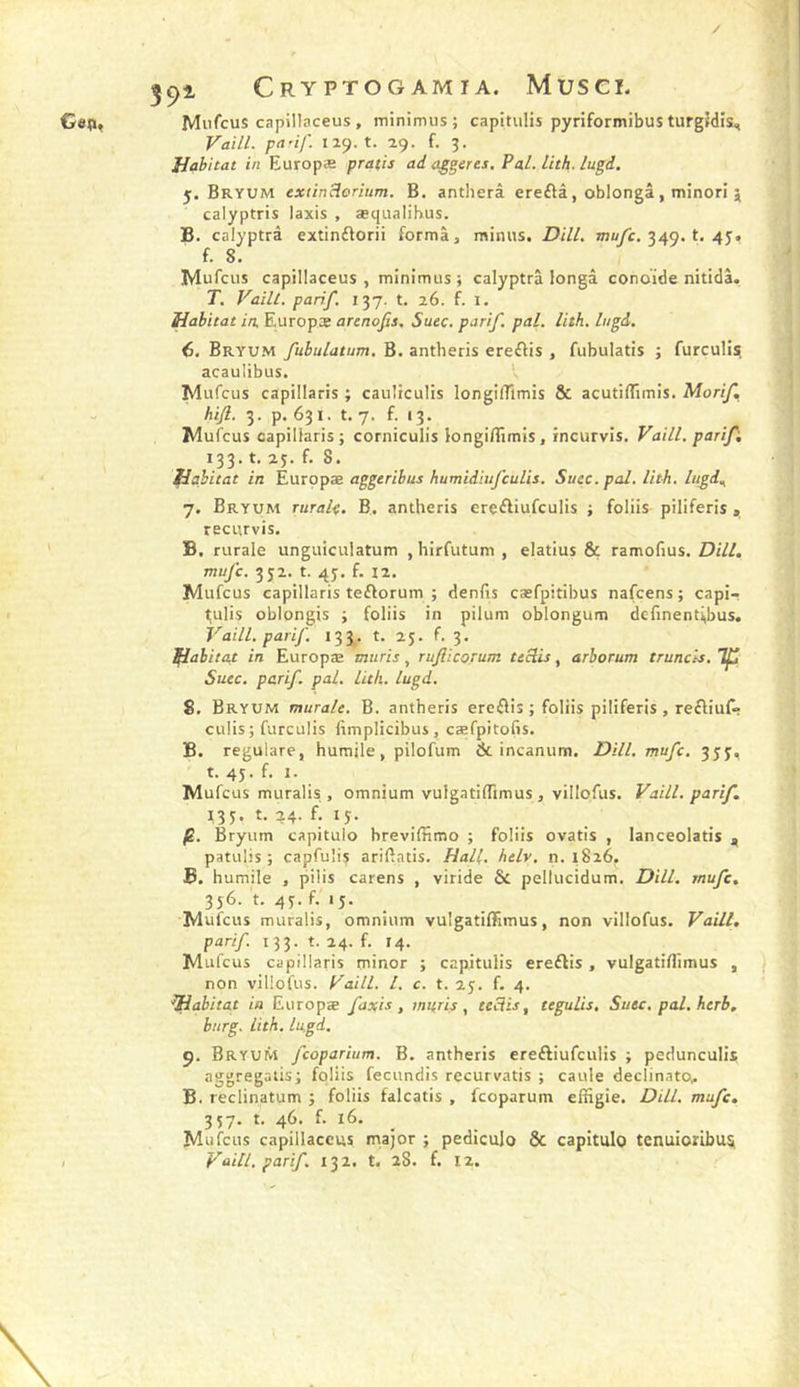 392 CRYPTOGAMIA. MUSCI.
Gen, Muſcus capillaceus, minimus; capitulis pyriformibus turgidis,
Vaill. pariſ. 129. t. 29. f. 3.
Habitat in Europæ pratis ad aggeres. Pal. lith. lugd.
5. BRYUM extinctorium. B. antherâ erectâ, oblongâ, minori;
calyptris laxis, æqualibus.
B. calyptrâ extinctorii formâ, minus. Dill. muſc. 349. t. 45,
f. 8.
Muſcus capillaceus, minimus; calyptrâ longâ conoïde nitidâ.
T. Vaill. pariſ. 137. t. 26. f. 1.
Habitat in Europæ arenoſis. Suec. pariſ. pal. lith. lugd.
6. BRYUM ſubulatum. B. antheris erectis, ſubulatis; ſurculis
acaulibus.
Muſcus capillaris; cauliculis longiſſimis & acutiſſimis. Moriſ.
hiſt. 3. p. 631. t. 7. f. 13.
Muſcus capillaris; corniculis longiſſimis, incurvis. Vaill. pariſ.
133. t. 25. f. 8.
Habitat in Europæ aggeribus humidiuſculis. Suec. pal. lith. lugd.
7. BRYUM rurale. B. antheris erectiuſculis; foliis piliferis,
recurvis.
B. rurale unguiculatum, hirſutum, elatius & ramoſius. Dill.
muſc. 352. t. 45. f. 12.
Muſcus capillaris tectorum; denſis cæſpitibus naſcens; capi-
tulis oblongis; foliis in pilum oblongum deſinentibus.
Vaill. pariſ. 133. t. 25. f. 3.
Habitat in Europæ muris, ruſticorum tectis, arborum truncis. ♃
Suec. pariſ. pal. lith. lugd.
8. BRYUM murale. B. antheris erectis; foliis piliferis, rectiuſ-
culis; ſurculis ſimplicibus, cæſpitoſis.
B. regulare, humile, piloſum & incanum. Dill. muſc. 355,
t. 45. f. 1.
Muſcus muralis, omnium vulgatiſſimus, villoſus. Vaill. pariſ.
135. t. 24. f. 15.
β. Bryum capitulo breviſſimo; foliis ovatis, lanceolatis,
patulis; capſulis ariſtatis. Hall. helv. n. 1826.
B. humile, pilis carens, viride & pellucidum. Dill. muſc.
356. t. 45. f. 15.
Muſcus muralis, omnium vulgatiſſimus, non villoſus. Vaill.
pariſ. 133. t. 24. f. 14.
Muſcus capillaris minor; capitulis erectis, vulgatiſſimus,
non villoſus. Vaill. l. c. t. 25. f. 4.
Habitat in Europæ ſaxis, muris, tectis, tegulis. Suec. pal. herb.
burg. lith. lugd.
9. BRYUM ſcoparium. B. antheris erectiuſculis; pedunculis
aggregatis; foliis ſecundis recurvatis; caule declinato.
B. reclinatum; foliis falcatis, ſcoparum effigie. Dill. muſc.
357. t. 46. f. 16.
Muſcus capillaceus major; pediculo & capitulo tenuioribus
Vaill. pariſ. 132. t. 28. f. 12.